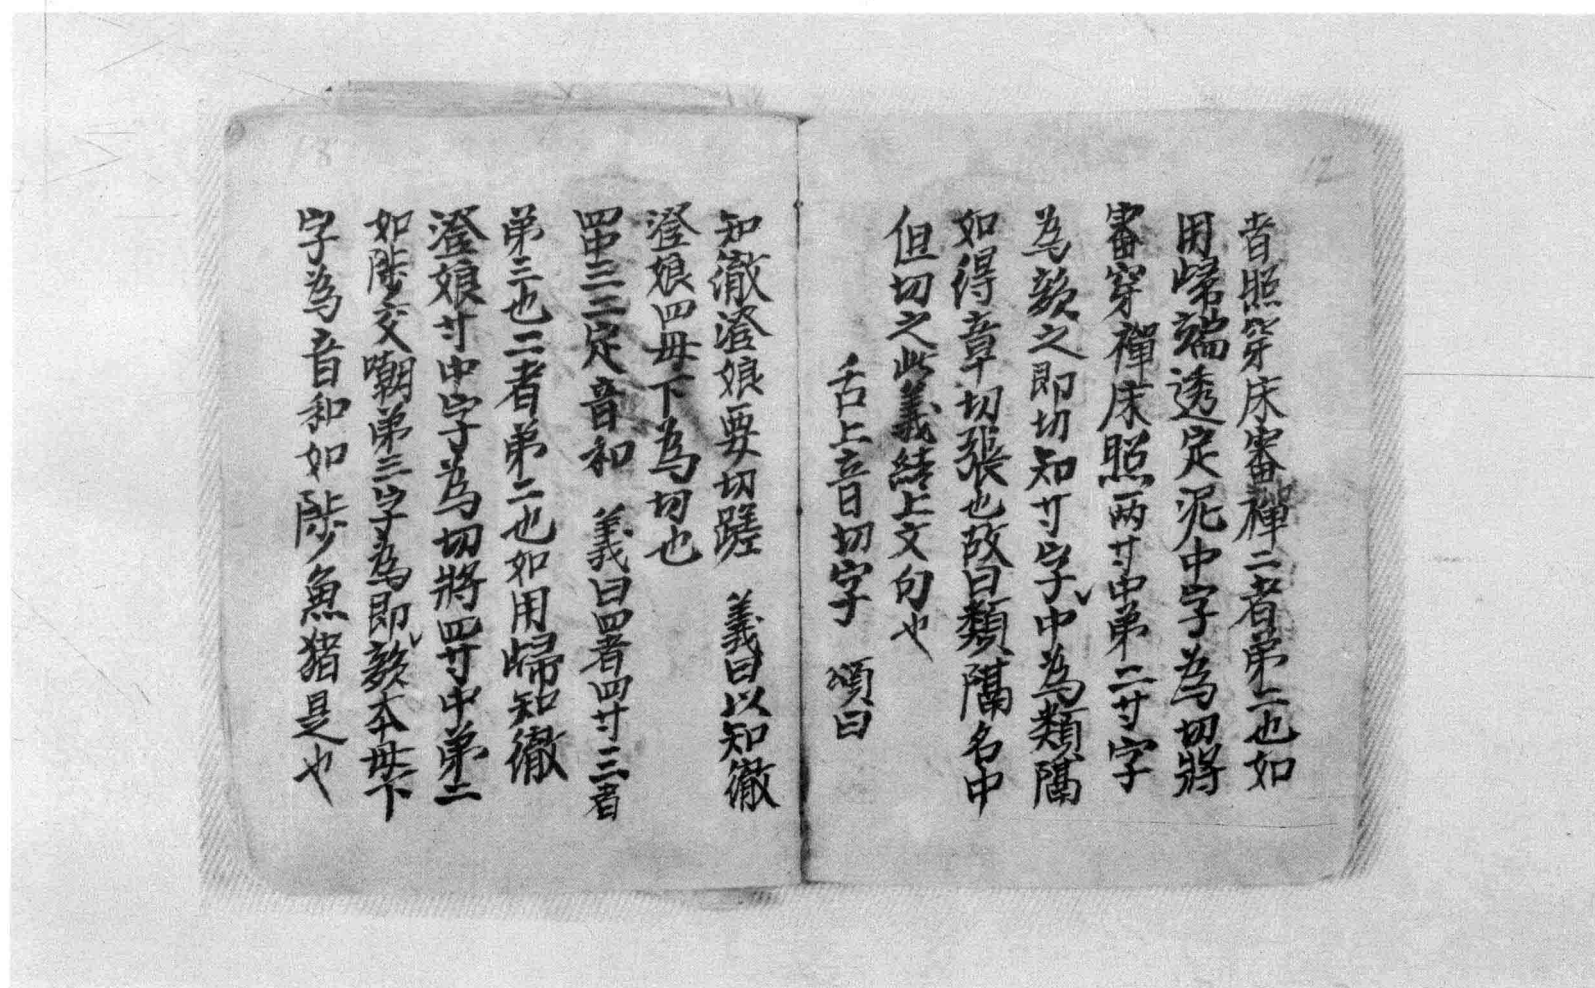 12
者照穿床審禪二者第二也如
用歸端透定泥中字為切將
審穿禪床照兩廿中第二廿字
為韻之即切知廿字中為類隔
如得章切張也故曰類隔名中
但切之此義結上文句也
舌上音切字 頌曰
18
知徹澄娘要切蹉 義曰以知徹
澄娘四毋下為切也
四中三二定音和 義曰四者四廿三者
第三也二者第二也如用歸知徹
澄娘廿中字為切將四廿中第二
如陟交嘲第三字為即韻本毋下
字為音和如陟魚猪是也